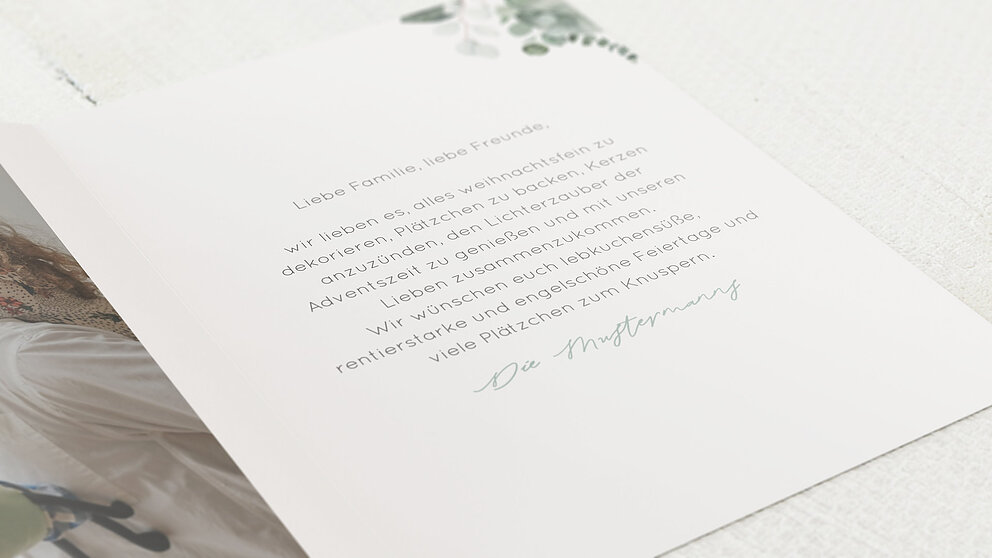 Liebe Familie, liebe Freunde,
wir lieben es, alles weihnachtsfein zu
dekorieren, Plätzchen zu backen, Kerzen
anzuzünden, den Lichterzauber der
Adventszeit zu genießen und mit unseren
Lieben zusammenzukommen.
Wir wünschen euch lebkuchensüße,
rentierstarke und engelschöne Feiertage und
viele Plätzchen zum Knuspern.
Die Mustermanns